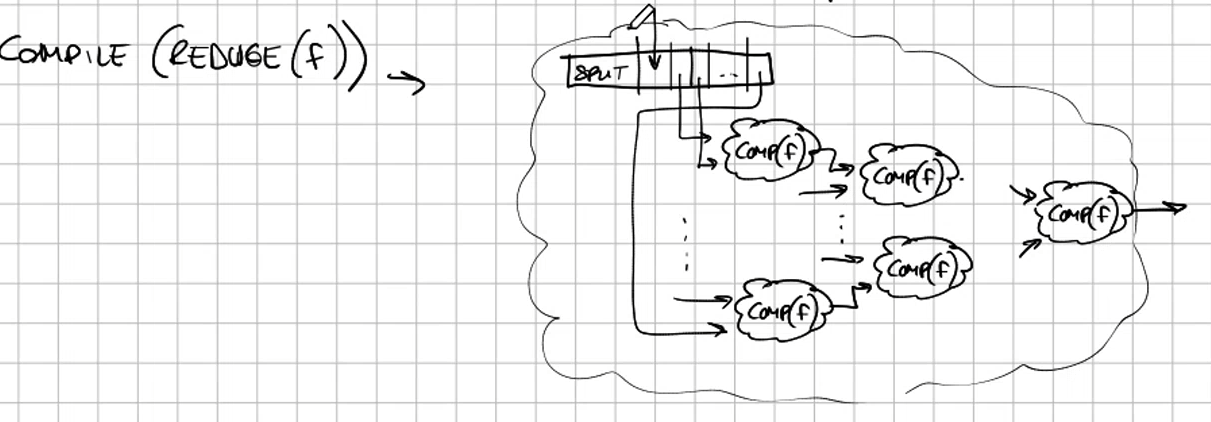 COMPILE (REDUCE(f)) →
SPLIT ...
COMP(f)
COMP(f)
COMP(f)
COMP(f)
COMP(f)